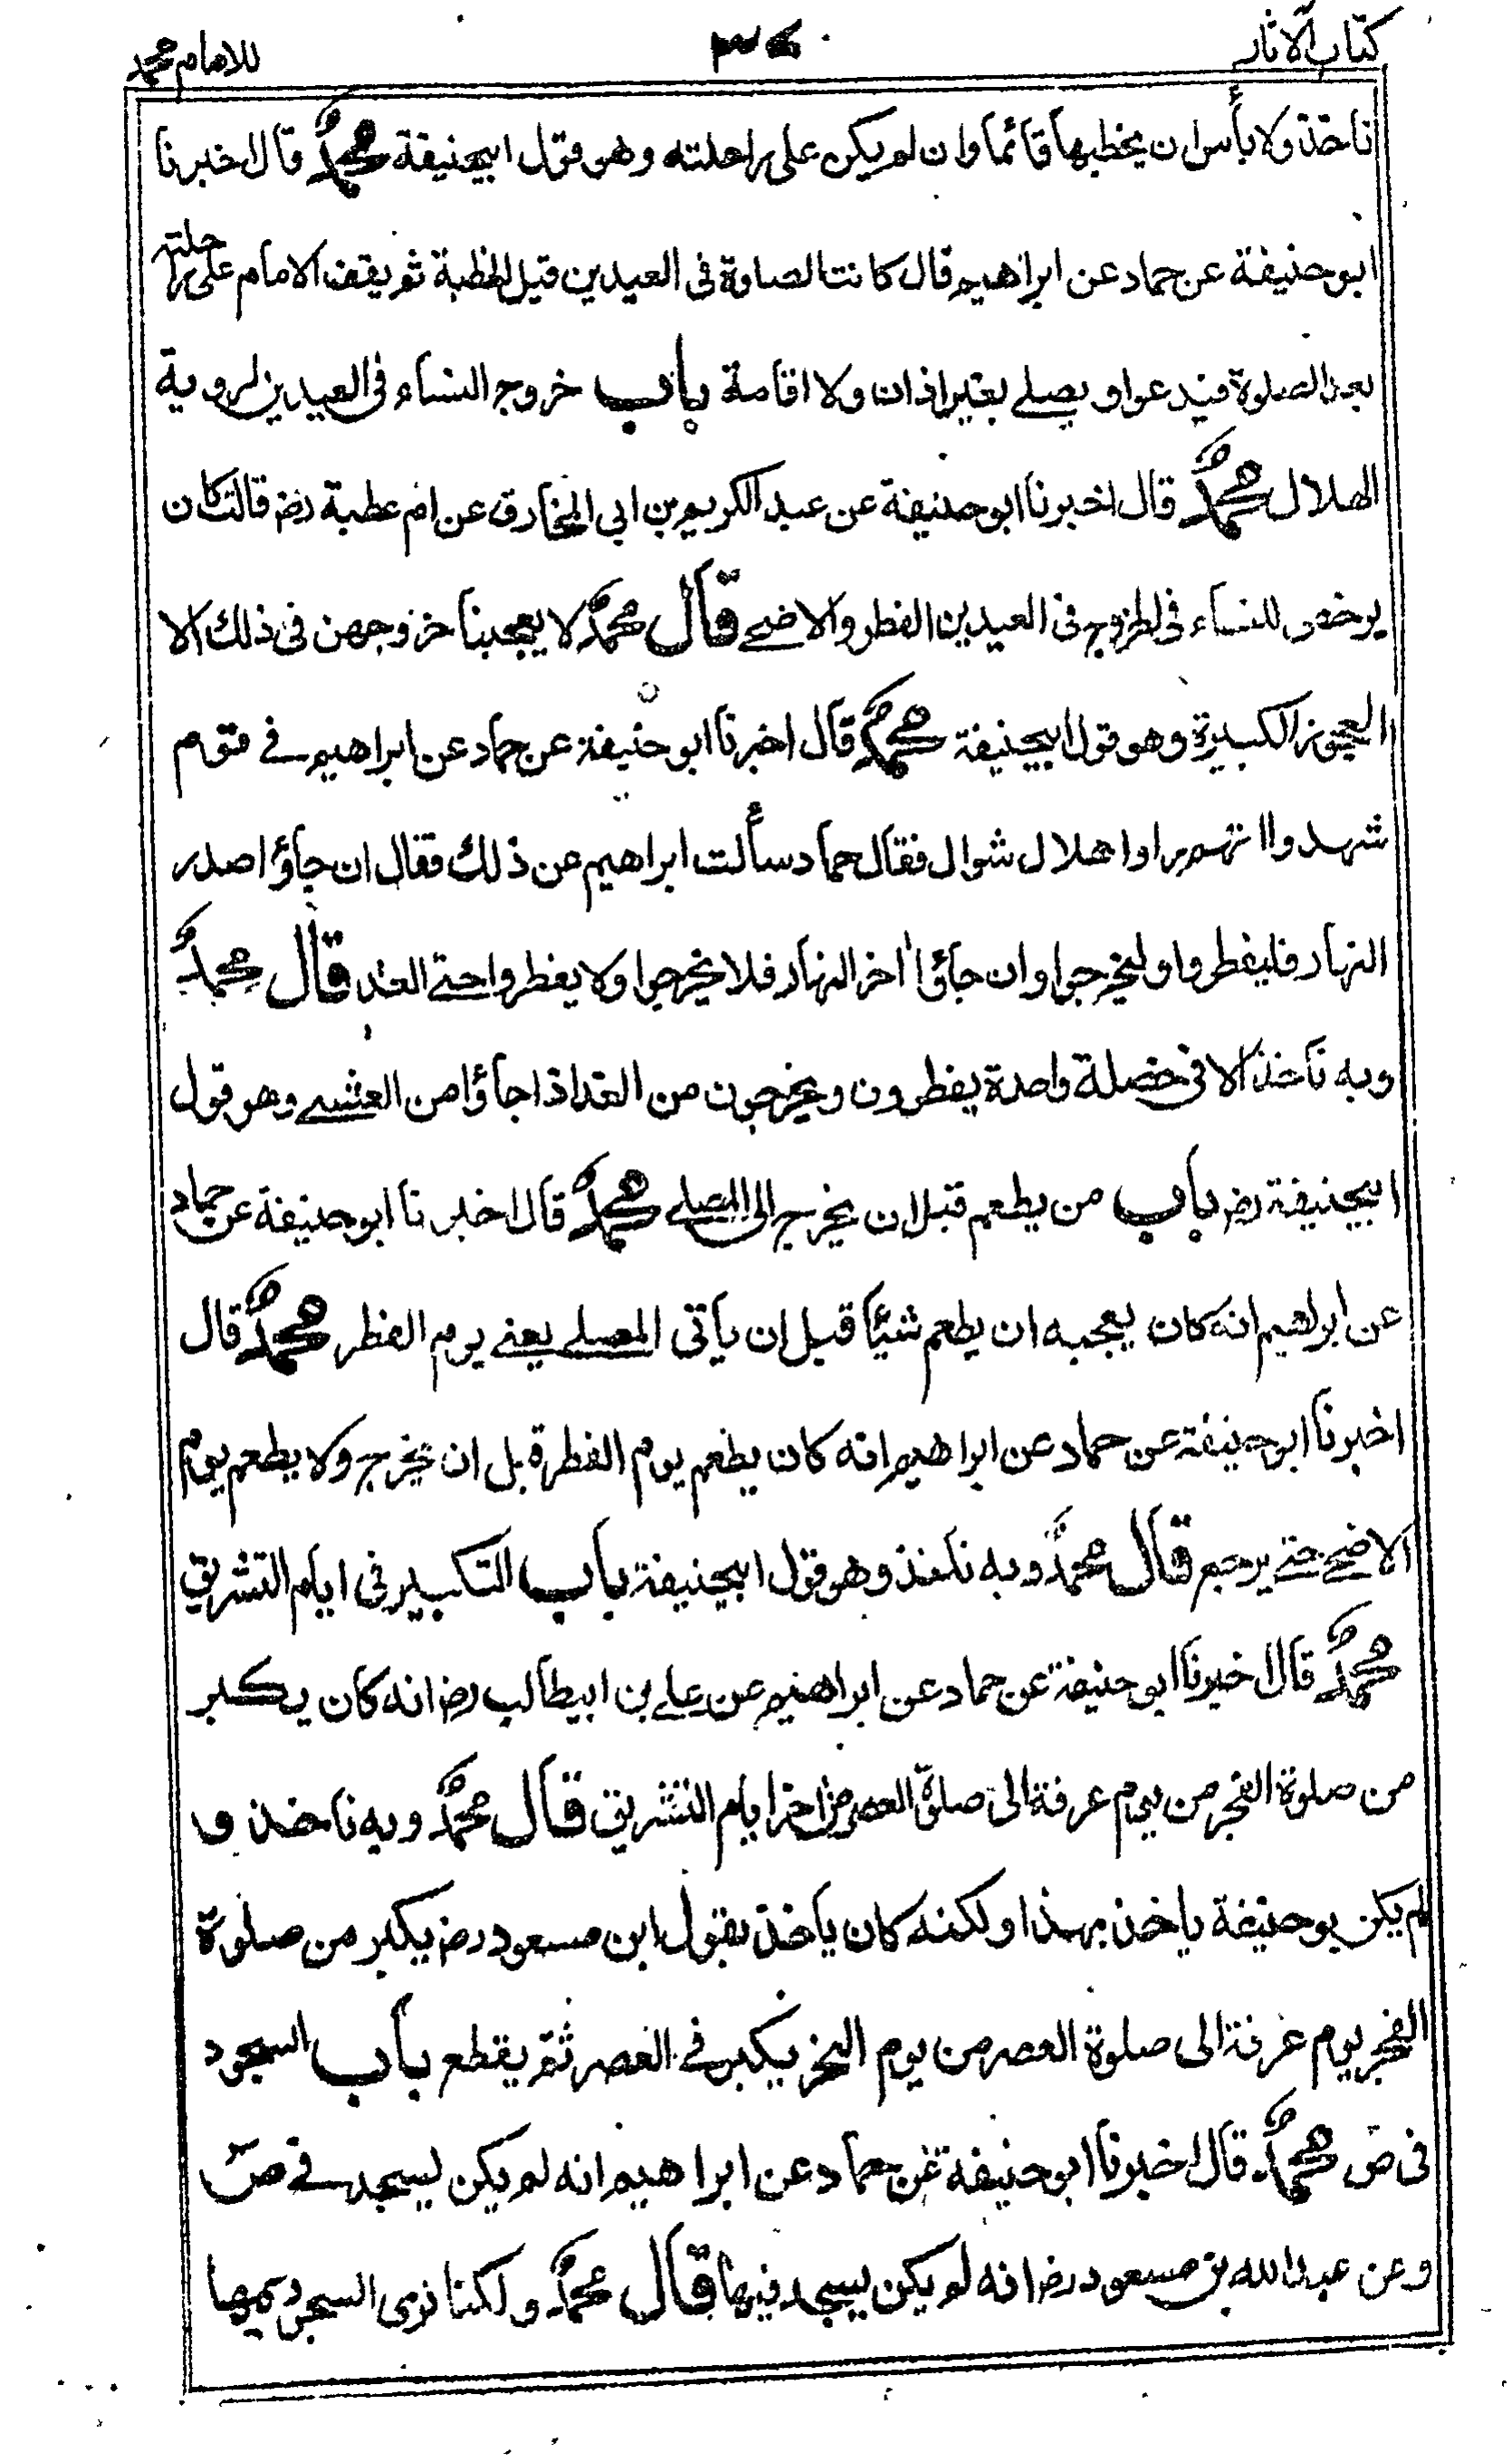 كتاب الآثار
للامام محمد
ناخذ ولا بأس ان يخطبها قائما وان لم يكن على راحلته وهو قول ابيحنيفة محمدؒ قال اخبرنا
ابو حنيفة عن حماد عن ابراهيم قال كانت الصلوة فى العيدين قبل الخطبة ثم يقف الامام على راحلته
بعد الصلوة فيدعو او يصلے بغير اذان ولا اقامة باب خروج النساء فى العيدين لروية
الهلال محمدؒ قال اخبرنا ابو حنيفة عن عبد الكريم بن ابى المخارق عن ام عطية رضـ قالت كان
يرخص للنساء فى الخروج فى العيدين الفطر والاضحے قال محمدؒ لا يعجبنا خروجهن فى ذلك الا
العجوز الكبيرة وهو قول ابيحنيفة محمدؒ قال اخبرنا ابو حنيفة عن حماد عن ابراهيم فے قوم
شهدوا انهم راوا هلال شوال فقال حماد سألت ابراهيم عن ذلك فقال ان جاؤا صدر
النهار فليفطروا وليخرجوا وان جاؤا اٰخر النهار فلا يخرجوا ولا يفطروا حتے الغد قال محمدؒ
وبه ناخذ الا فى خصلة واحدة يفطرون ويخرجون من الغد اذا جاؤا من العشے وهو قول
ابيحنيفة رضـ باب من يطعم قبل ان يخرج الى المصلے محمدؒ قال اخبرنا ابو حنيفة عن حماد
عن ابراهيم انه كان يعجبه ان يطعم شيئا قبل ان يأتى المصلے يعنے يوم الفطر محمدؒ قال
اخبرنا ابو حنيفة عن حماد عن ابراهيم انه كان يطعم يوم الفطر قبل ان يخرج ولا يطعم يوم
الاضحے حتے يرجع قال محمدؒ وبه ناخذ وهو قول ابيحنيفة باب التكبير فى ايام التشريق
محمدؒ قال اخبرنا ابو حنيفة عن حماد عن ابراهيم عن علے بن ابيطالب رضـ انه كان يكبر
من صلوة الفجر من يوم عرفة الى صلوة العصر من اٰخر ايام التشريق قال محمدؒ وبه ناخذ و
لم يكن بو حنيفة ياخذ بهذا ولكنه كان ياخذ بقول ابن مسعود رضـ يكبر من صلوة
الفجر يوم عرفة الى صلوة العصر من يوم النحر يكبر فے العصر ثم يقطع باب السجود
فى صٓ محمدؒ قال اخبرنا ابو حنيفة عن حماد عن ابراهيم انه لم يكن يسجد فے صٓ
وعن عبد الله بن مسعود رضـ انه لم يكن يسجد فيها قال محمدؒ ولكنا نرى السجود فيها